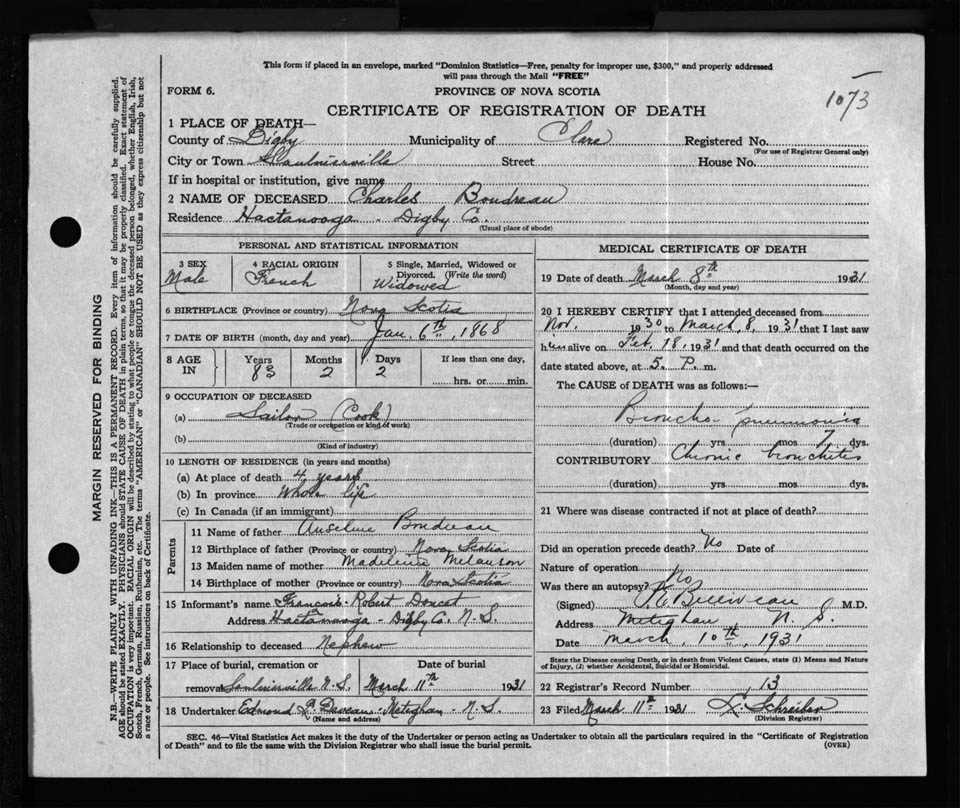 This form if placed in an envelope, marked "Dominion Statistics—Free, penalty for improper use, $300," and properly addressed
will pass through the Mail "FREE"
FORM 6. PROVINCE OF NOVA SCOTIA
1073
CERTIFICATE OF REGISTRATION OF DEATH
1 PLACE OF DEATH—
County of Digby Municipality of Clare Registered No.
(For use of Registrar General only)
City or Town Saulnierville Street House No.
If in hospital or institution, give name
2 NAME OF DECEASED Charles Boudreau
Residence Hactanooga - Digby Co.
(Usual place of abode)
PERSONAL AND STATISTICAL INFORMATION
3 SEX Male
4 RACIAL ORIGIN French
5 Single, Married, Widowed or
Divorced. (Write the word)
Widowed
6 BIRTHPLACE (Province or country) Nova Scotia
7 DATE OF BIRTH (month, day and year) Jan. 6th, 1868
8 AGE IN Years Months Days If less than one day,
83 2 2 hrs. or min.
9 OCCUPATION OF DECEASED
(a) Sailor (Cook)
(Trade or occupation or kind of work)
(b)
(Kind of industry)
10 LENGTH OF RESIDENCE (in years and months)
(a) At place of death 4 years
(b) In province Whole life
(c) In Canada (if an immigrant)
Parents
11 Name of father Anselme Boudreau
12 Birthplace of father (Province or country) Nova Scotia
13 Maiden name of mother Madeleine Melanson
14 Birthplace of mother (Province or country) Nova Scotia
15 Informant's name François-Robert Doucet
Address Hactanooga - Digby Co. N.S.
16 Relationship to deceased Nephew
17 Place of burial, cremation or Date of burial
removal Saulnierville N.S. March 11th 1931
18 Undertaker Edmond P. Deveau - Meteghan - N.S.
(Name and address)
MEDICAL CERTIFICATE OF DEATH
19 Date of death March 8th 1931
(Month, day and year)
20 I HEREBY CERTIFY that I attended deceased from
Nov. 1930 to March 8, 1931 that I last saw
him alive on Feb. 18, 1931 and that death occurred on the
date stated above, at 5. P. m.
The CAUSE of DEATH was as follows:—
Broncho pneumonia
(duration) yrs mos 7 dys.
CONTRIBUTORY Chronic bronchitis
(duration) yrs mos dys.
21 Where was disease contracted if not at place of death?
Did an operation precede death? No Date of
Nature of operation
Was there an autopsy? No
(Signed) Belliveau M.D.
Address Meteghan N. S.
Date March 10th, 1931
State the Disease causing Death, or in death from Violent Causes, state (1) Means and Nature
of Injury, (2) whether Accidental, Suicidal or Homicidal.
22 Registrar's Record Number 13
23 Filed March 11th 1931 Schreiber
(Division Registrar)
SEC. 46—Vital Statistics Act makes it the duty of the Undertaker or person acting as Undertaker to obtain all the particulars required in the "Certificate of Registration
of Death" and to file the same with the Division Registrar who shall issue the burial permit. (OVER)
MARGIN RESERVED FOR BINDING
N.B.—WRITE PLAINLY WITH UNFADING INK—THIS IS A PERMANENT RECORD. Every item of information should be carefully supplied.
AGE should be stated EXACTLY. PHYSICIANS should STATE CAUSE OF DEATH in plain terms, so that it may be properly classified. Exact statement of
OCCUPATION is very important. RACIAL ORIGIN will be described by stating to what people or tongue the deceased person belonged, whether English, Irish,
Scotch, French, German, Russian, Ruthenian, etc. The terms "AMERICAN" or "CANADIAN" SHOULD NOT BE USED as they express citizenship but not
a race or people. See instructions on back of Certificate.